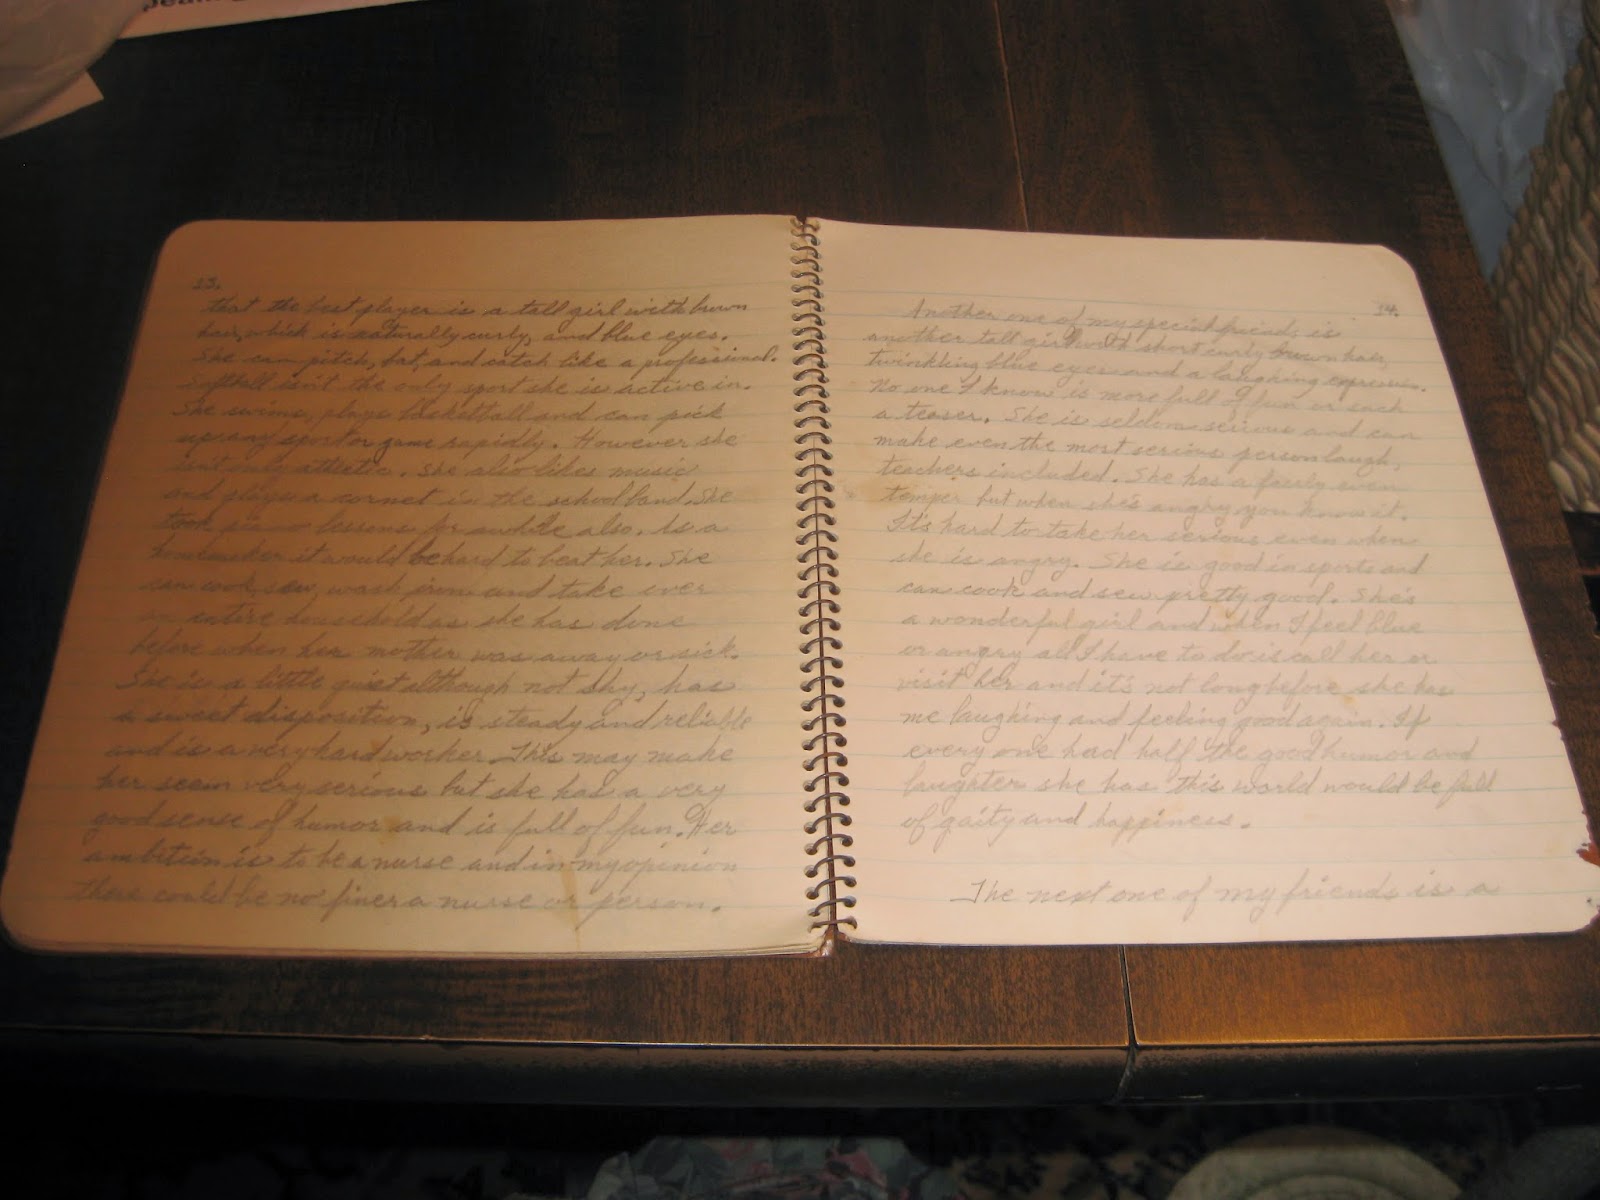 13.
that the best player is a tall girl with brown
hair, which is naturally curly, and blue eyes.
She can pitch, bat, and catch like a professional.
Softball isn't the only sport she is active in.
She swims, plays basketball and can pick
up any sport or game rapidly. However she
isn't only athletic. She also likes music
and plays a cornet in the school band. She
took lessons for awhile also. As a
homemaker it would be hard to beat her. She
can cook, sew, wash iron and take over
an entire household as she has done
before when her mother was away or sick.
She is a little quiet although not shy, has
a sweet disposition, is steady and reliable
and is a very hard worker. This may make
her seem very serious but she has a very
good sense of humor and is full of fun. Her
ambition is to be a nurse and in my opinion
there could be no finer a nurse or person.
14.
Another one of my special friends is
another tall girl with short curly brown hair,
twinkling blue eyes and a laughing expression.
No one I know is more full of fun or such
a teaser. She is seldom serious and can
make even the most serious person laugh,
teachers included. She has a fairly even
temper but when she's angry you know it.
It's hard to take her serious even when
she is angry. She is good in sports and
can cook and sew pretty good. She's
a wonderful girl and when I feel blue
or angry all I have to do is call her or
visit her and it's not long before she has
me laughing and feeling good again. If
every one had half the good humor and
laughter she has this world would be full
of gaity and happiness.
The next one of my friends is a